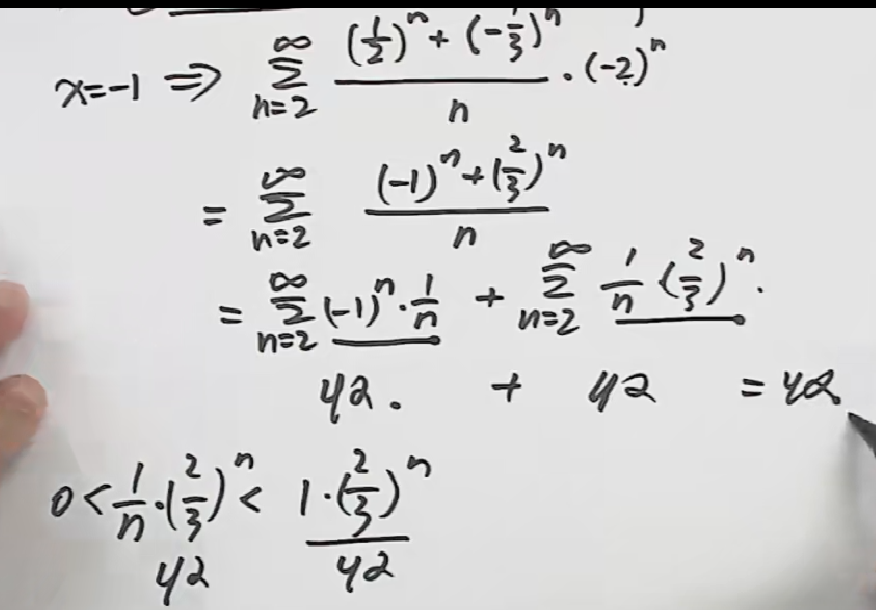 x=-1 ⇒ ∑_{n=2}^{∞} \frac{(\frac{1}{2})^n + (-\frac{1}{3})^n}{n} · (-2)^n
= ∑_{n=2}^{∞} \frac{(-1)^n + (\frac{2}{3})^n}{n}
= ∑_{n=2}^{∞} (-1)^n · \frac{1}{n} + ∑_{n=2}^{∞} \frac{1}{n} (\frac{2}{3})^n.
收. + 收 = 收.
0 < \frac{1}{n} · (\frac{2}{3})^n < 1 · (\frac{2}{3})^n
收 收